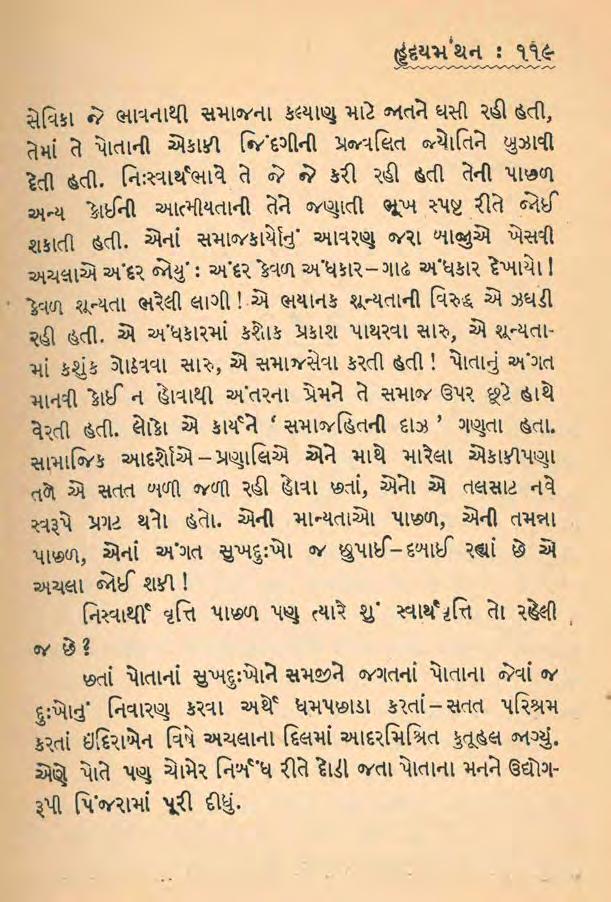 હૃદયમંથન : ૧૧૯
સેવિકા જે ભાવનાથી સમાજના કલ્યાણ માટે જાતને ઘસી રહી હતી,
તેમાં તે પોતાની એકાકી જિંદગીની પ્રજ્વલિત જ્યોતિને બુઝાવી
દેતી હતી. નિઃસ્વાર્થભાવે તે જે જે કરી રહી હતી તેની પાછળ
અન્ય કોઈની આત્મીયતાની તેને જણાતી ભૂખ સ્પષ્ટ રીતે જોઈ
શકાતી હતી. એનાં સમાજકાર્યોનું આવરણ જરા બાજુએ ખેસવી
અચલાએ અંદર જોયું : અંદર કેવળ અંધકાર–ગાઢ અંધકાર દેખાયો!
કેવળ શૂન્યતા ભરેલી લાગી! એ ભયાનક શૂન્યતાની વિરુદ્ધ એ ઝઘડી
રહી હતી. એ અંધકારમાં કશોક પ્રકાશ પાથરવા સારુ, એ શૂન્યતા-
માં કશુંક ગોઠવવા સારુ, એ સમાજસેવા કરતી હતી! પોતાનું અંગત
માનવી કોઈ ન હોવાથી અંતરના પ્રેમને તે સમાજ ઉપર છૂટે હાથે
વેરતી હતી. લોકો એ કાર્યને ‘સમાજહિતની દાઝ’ ગણતા હતા.
સામાજિક આદર્શોએ–પ્રણાલિએ એને માથે મારેલા એકાકીપણા
તળે એ સતત બળી જળી રહી હોવા છતાં, એનો એ તલસાટ નવે
સ્વરૂપે પ્રગટ થતો હતો. એની માન્યતાઓ પાછળ, એની તમન્ના
પાછળ, એનાં અંગત સુખદુઃખો જ છુપાઈ–દબાઈ રહ્યાં છે એ
અચલા જોઈ શકી!
નિસ્વાર્થી વૃત્તિ પાછળ પણ ત્યારે શું સ્વાર્થવૃત્તિ તો રહેલી
જ છે?
છતાં પોતાનાં સુખદુઃખોને સમજીને જગતનાં પોતાના જેવાં જ
દુઃખોનું નિવારણ કરવા અર્થે ધમપછાડા કરતાં–સતત પરિશ્રમ
કરતાં ઇંદિરાબેન વિષે અચલાના દિલમાં આદરમિશ્રિત કુતૂહલ જાગ્યું.
એણે પોતે પણ ચોમેર નિર્બંધ રીતે દોડી જતા પોતાના મનને ઉદ્યોગ-
રૂપી પિંજરામાં પૂરી દીધું.